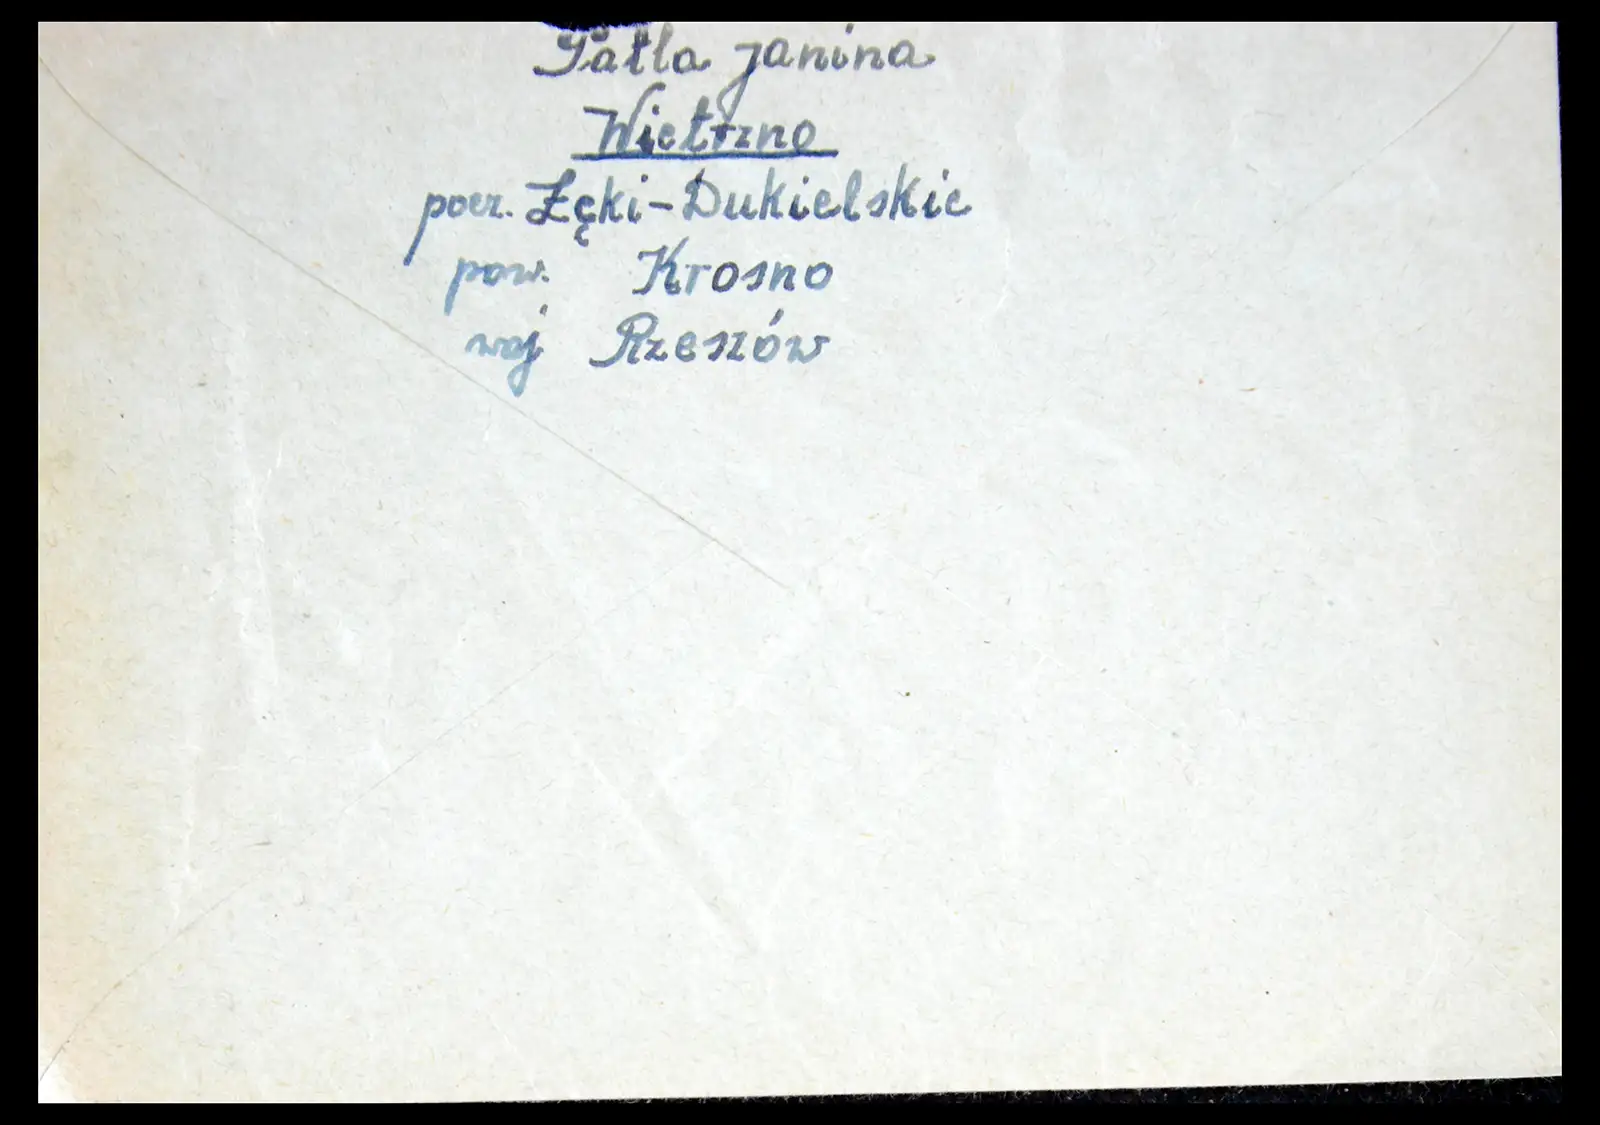 Patla Janina
Wietrzno
pocz. Łęki-Dukielskie
pow. Krosno
woj Rzeszów